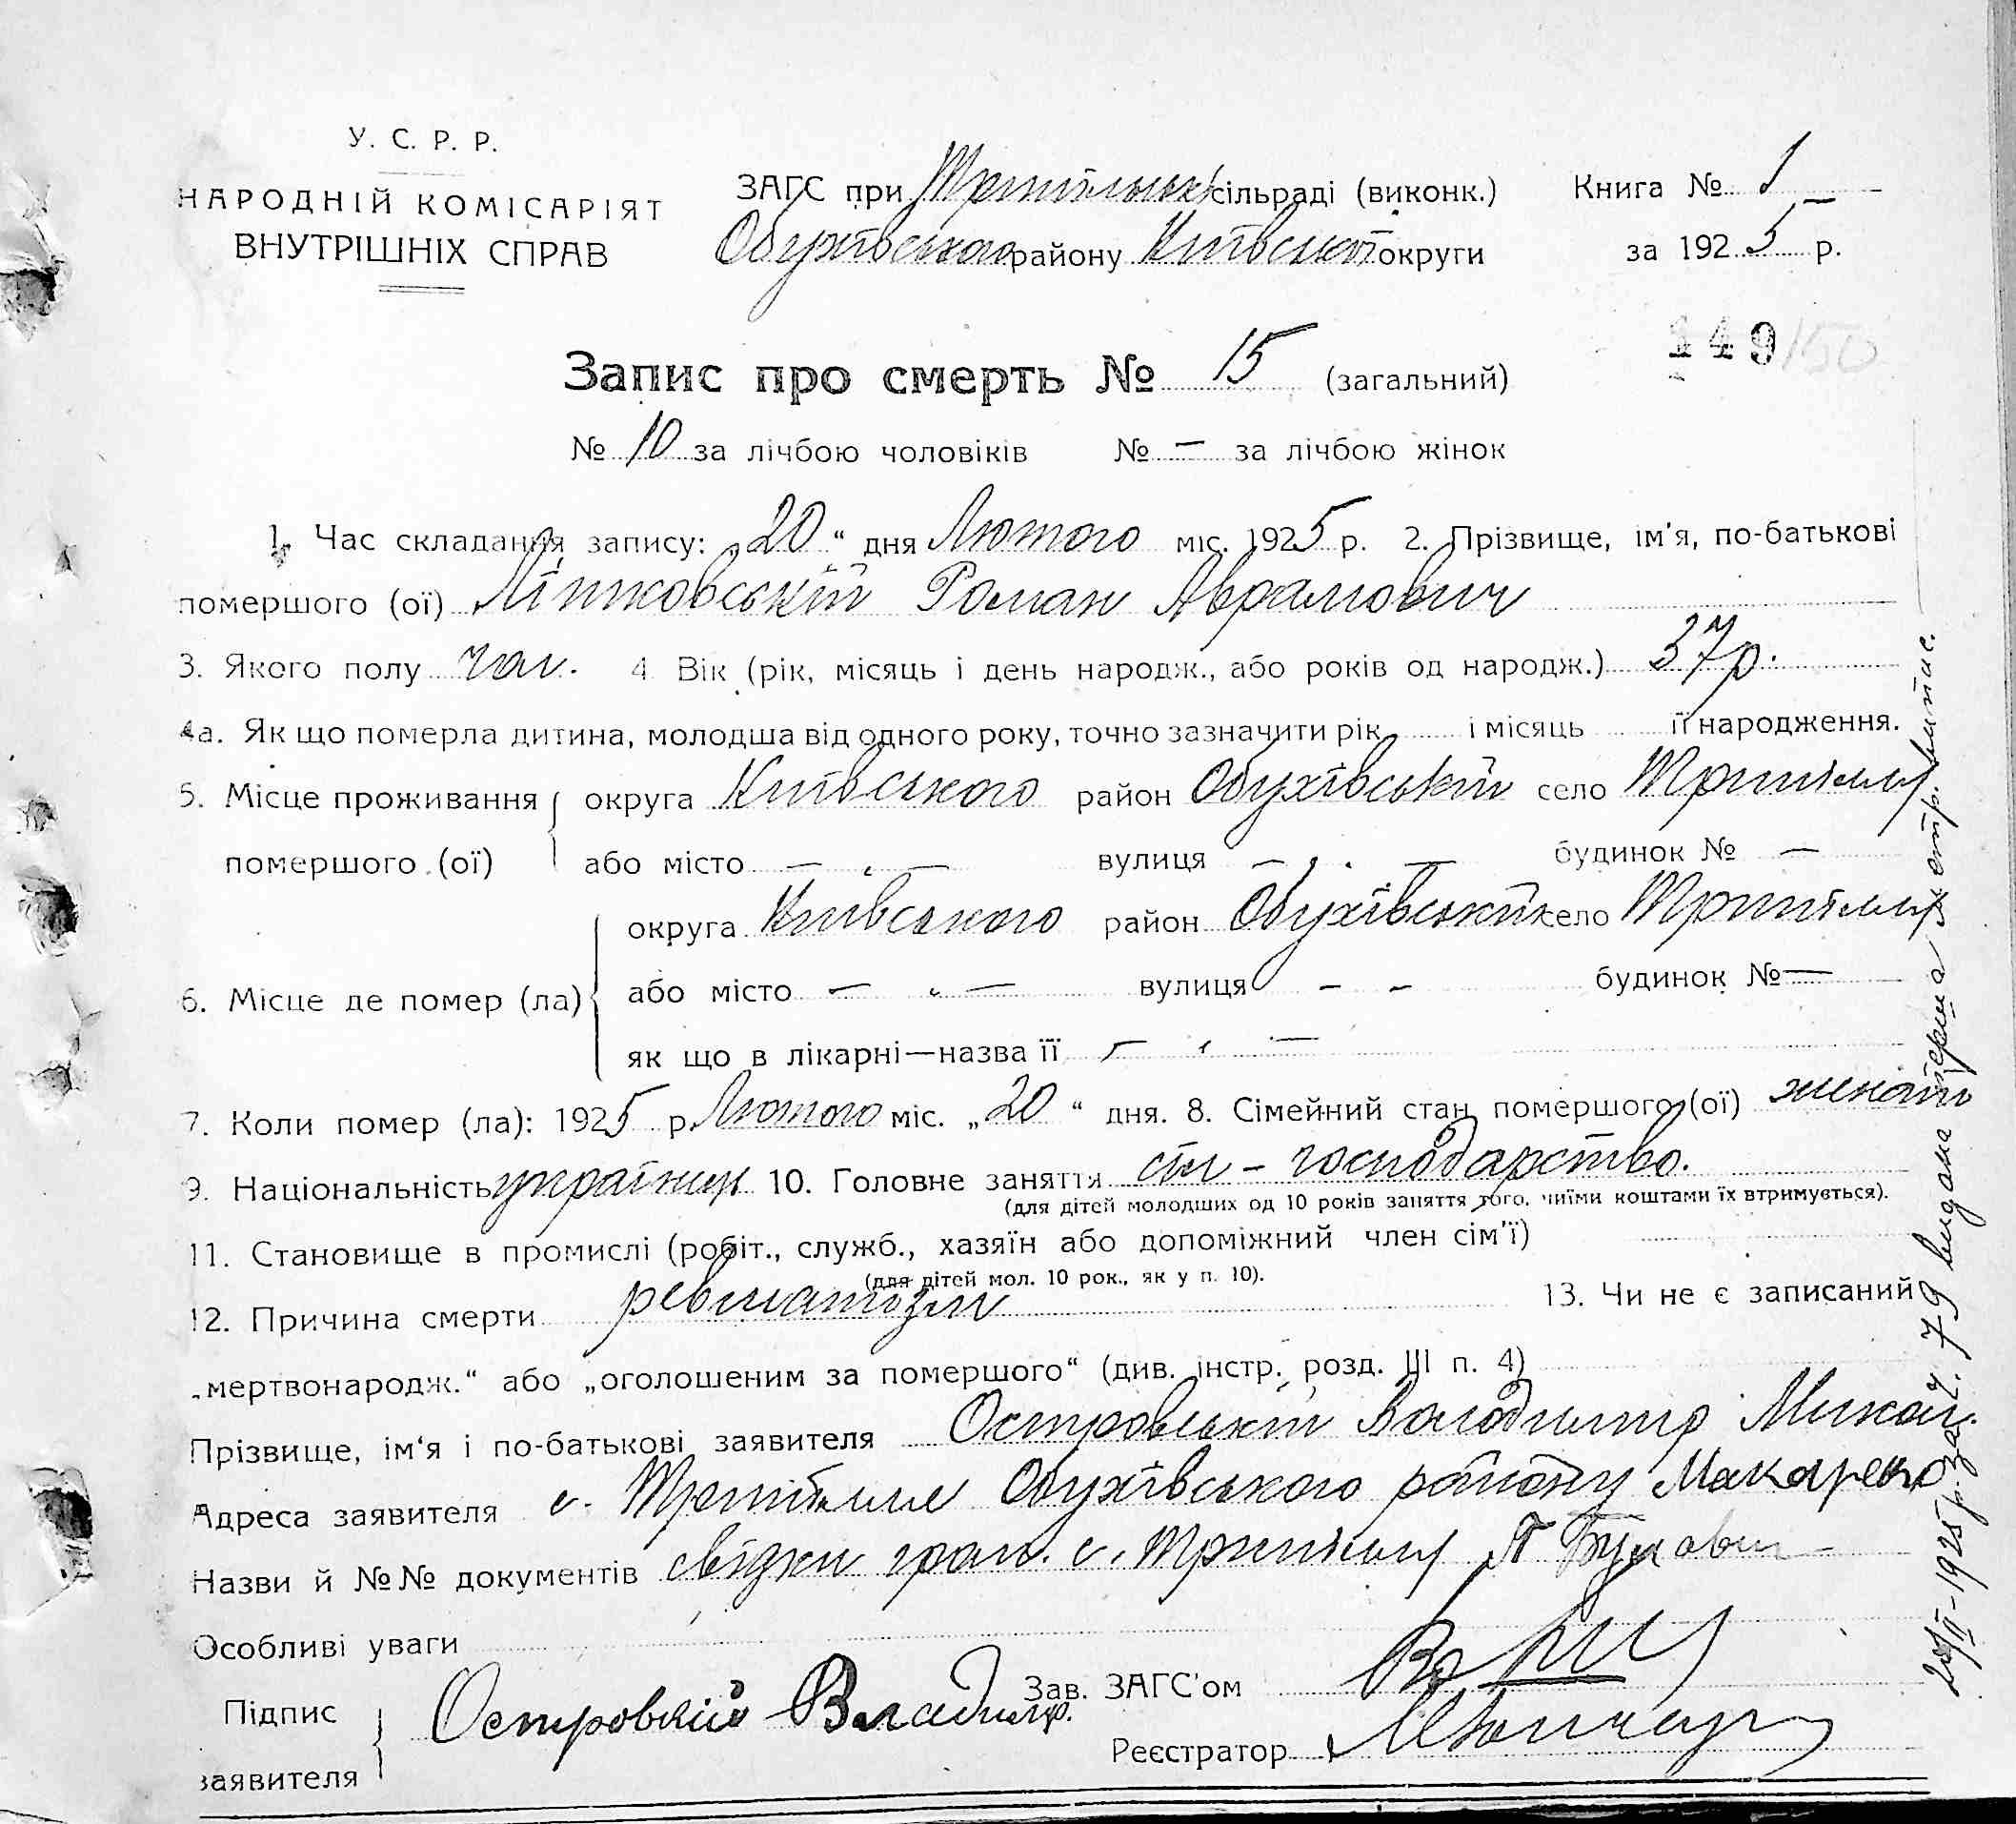 У. С. Р. Р.
НАРОДНІЙ КОМІСАРІЯТ
ВНУТРІШНІХ СПРАВ
ЗАГС при Трипільській сільраді (виконк.)
Обухівського району Київської округи
Книга № 1
за 1925 р.
149 150
Запис про смерть № 15 (загальний)
№ 10 за лічбою чоловіків № — за лічбою жінок
1. Час складання запису: „20“ дня Лютого міс. 1925 р. 2. Прізвище, ім'я, по-батькові
помершого (ої) Ліпковській Роман Аврамович
3. Якого полу чол. 4 Вік (рік, місяць і день народж., або років од народж.) 37 р.
4а. Як що померла дитина, молодша від одного року, точно зазначити рік і місяць її народження.
5. Місце проживання округа Київського район Обухівській село Трипілля
помершого (ої) або місто — вулиця — будинок № —
округа Київського район Обухівській село Трипілля
6. Місце де помер (ла) або місто — вулиця — будинок № —
як що в лікарні—назва її —
7. Коли помер (ла): 1925 р. Лютого міс. „20“ дня. 8. Сімейний стан помершого (ої) женатій
9. Національність українец 10. Головне заняття сіл - господарство.
(для дітей молодших од 10 років заняття того, чиїми коштами їх втримується).
11. Становище в промислі (робіт., служб., хазяїн або допоміжний член сім'ї)
(для дітей мол. 10 рок., як у п. 10).
12. Причина смерти ревматизм 13. Чи не є записаний
„мертвонародж.“ або „оголошеним за помершого“ (див. інстр. розд. III п. 4)
Прізвище, ім'я і по-батькові заявителя Островській Володимир Микол.
Адреса заявителя с. Трипілле Обухівського району Макаренко
Назви й №№ документів свідки гром. с. Трипілля П
Особливі уваги
Підпис заявителя Островский Владимір.
Зав. ЗАГС'ом
Реєстратор
II-1925 р. за ч. 79 видана перша метр. випис.